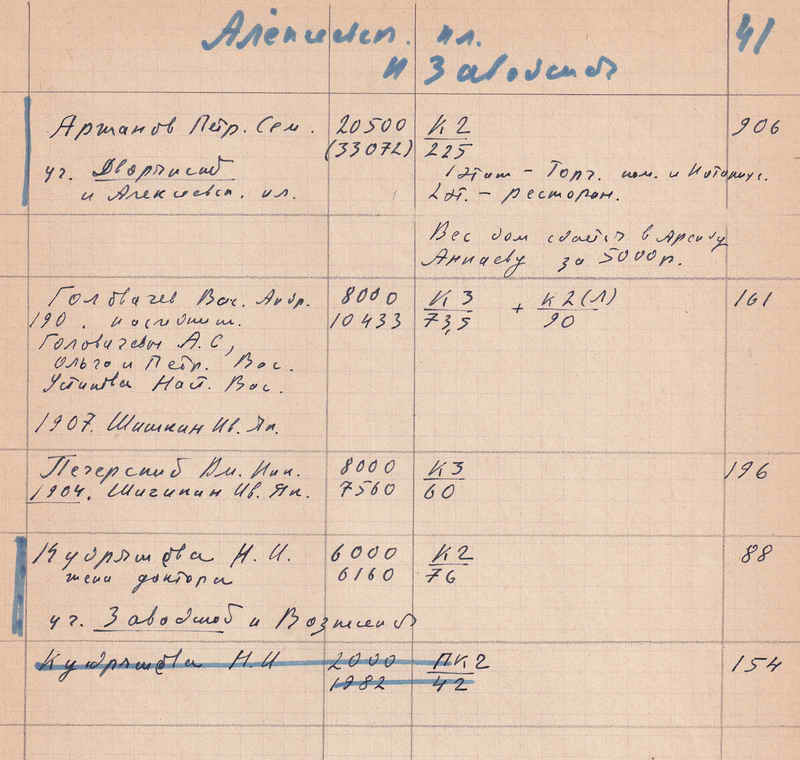 Алексеевск. пл. 41
и Заводской
Аржанов Петр. Сем. 20500 К2 906
(33072) 225
уг. Дворянской 1 этаж – Торг. пом. и Нотариус.
и Алексеевск. пл. 2 эт. – ресторан.
Вес дом сдается в Аренду
Аннаеву за 5000 р.
Головачев Вас. Андр. 8000 К3 + К2(Л) 161
190 . наследник. 10433 73,5 90
Головачевы А.С,
Ольга и Петр. Вас.
Устинова Нат. Вас.
1907. Шишкин Ив. Як.
Печерский Вл. Ник. 8000 К3 196
1904. Шишкин Ив. Як. 7560 60
Кудряшова Н. И. 6000 К2 88
жена доктора 6160 76
уг. Заводской и Вознесенск
Кудряшова Н.И 2000 ПК2 154
1982 42